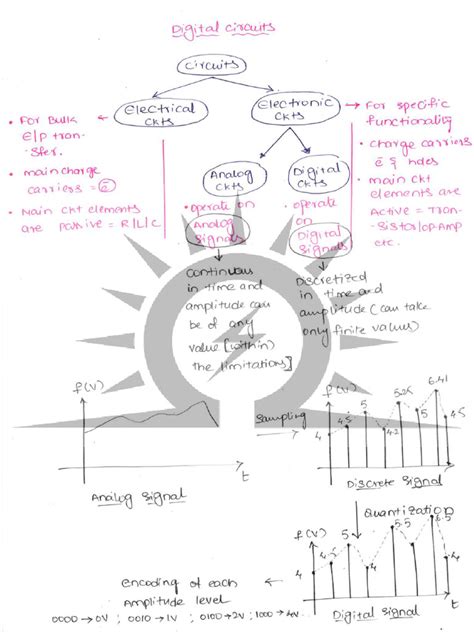 Digital circuits
Circuits
Electrical
ckts
Electronic
ckts
• For Bulk
E/p tran-
sfer.
• main charge
carriers = ē
• Main ckt elements
are passive = R/L/C
→ For specific
functionality
• charge carriers
ē & holes
• main ckt
elements are
Active = Tran-
sistor/op-Amp
etc.
Analog
ckts
Digital
ckts
• operate on
Analog
signals
• operate
on
Digital
signals
continuous
in time and
amplitude can
be of any
value [within)
the limitations]
Discretized
in time and
amplitude (can take
only finite values)
f(v)
t
Analog signal
Sampling
4
4.5
5
4.2
5.25
5
6.41
4.5
t
Discrete signal
Quantization
f(v)
4
4.5
5
4
5.5
5
6.5
4
t
Digital signal
encoding of each
Amplitude level
0000→0V ; 0010→1V ; 0100→2V ; 1000→4V..